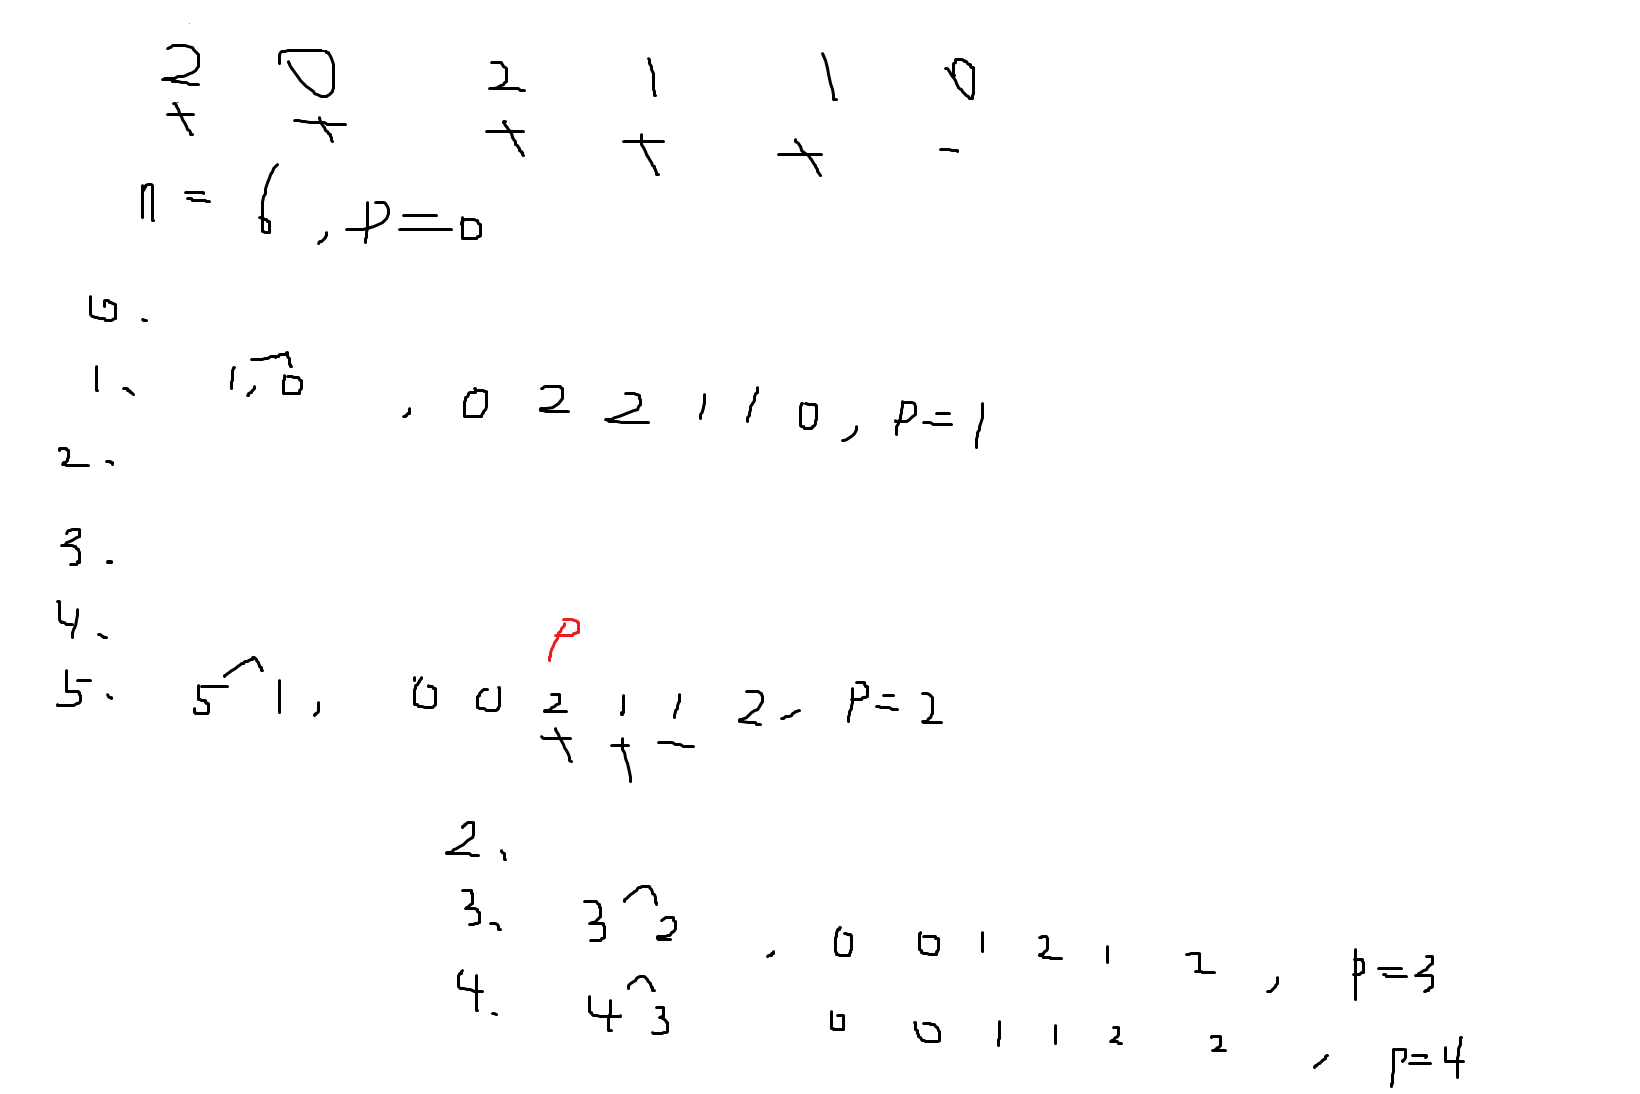 2 0 2 1 1 0
+ + + + + -
n = 6, p=0
0.
1. 1, 0, 0 2 2 1 1 0, p=1
2.
3.
4.
p
5. 5 1, 0 0 2 1 1 2, p=2
+ + -
2.
3. 3 2, 0 0 1 2 1 2, p=3
4. 4 3 0 0 1 1 2 2, p=4